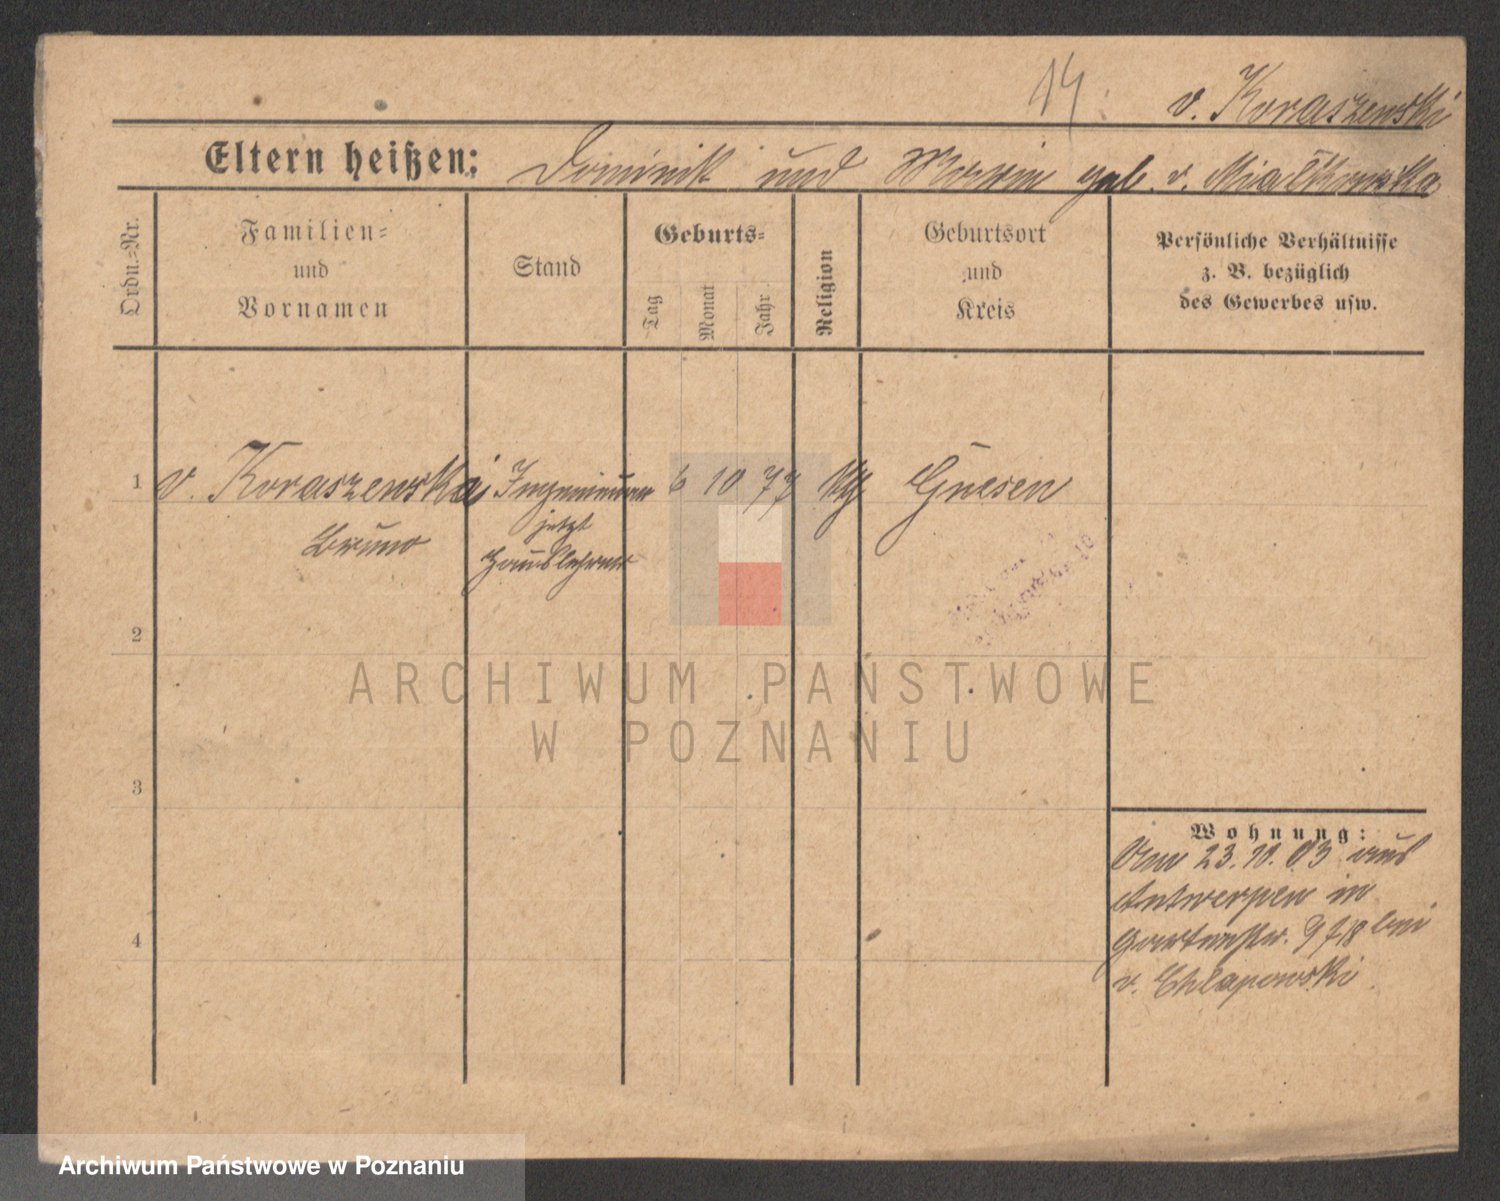 14.
v. Koraszewski
Eltern heißen: Dominik und Maria geb. v. Mialkowska
Ordn.-Nr.
Familien-
und
Vornamen
Stand
Geburts-
Tag
Monat
Jahr
Religion
Geburtsort
und
Kreis
Persönliche Verhältnisse
z. B. bezüglich
des Gewerbes usw.
1 v. Koraszewski Ingenieur 6 10 77 Gnesen
Bruno
jetzt
Hauslehrer
2
3
4
Wohnung:
Am 23. 10. 03 aus
Antwerpen in
Gartenstr. bei
v. Chlapowski
ARCHIWUM PAŃSTWOWE
W POZNANIU
Archiwum Państwowe w Poznaniu